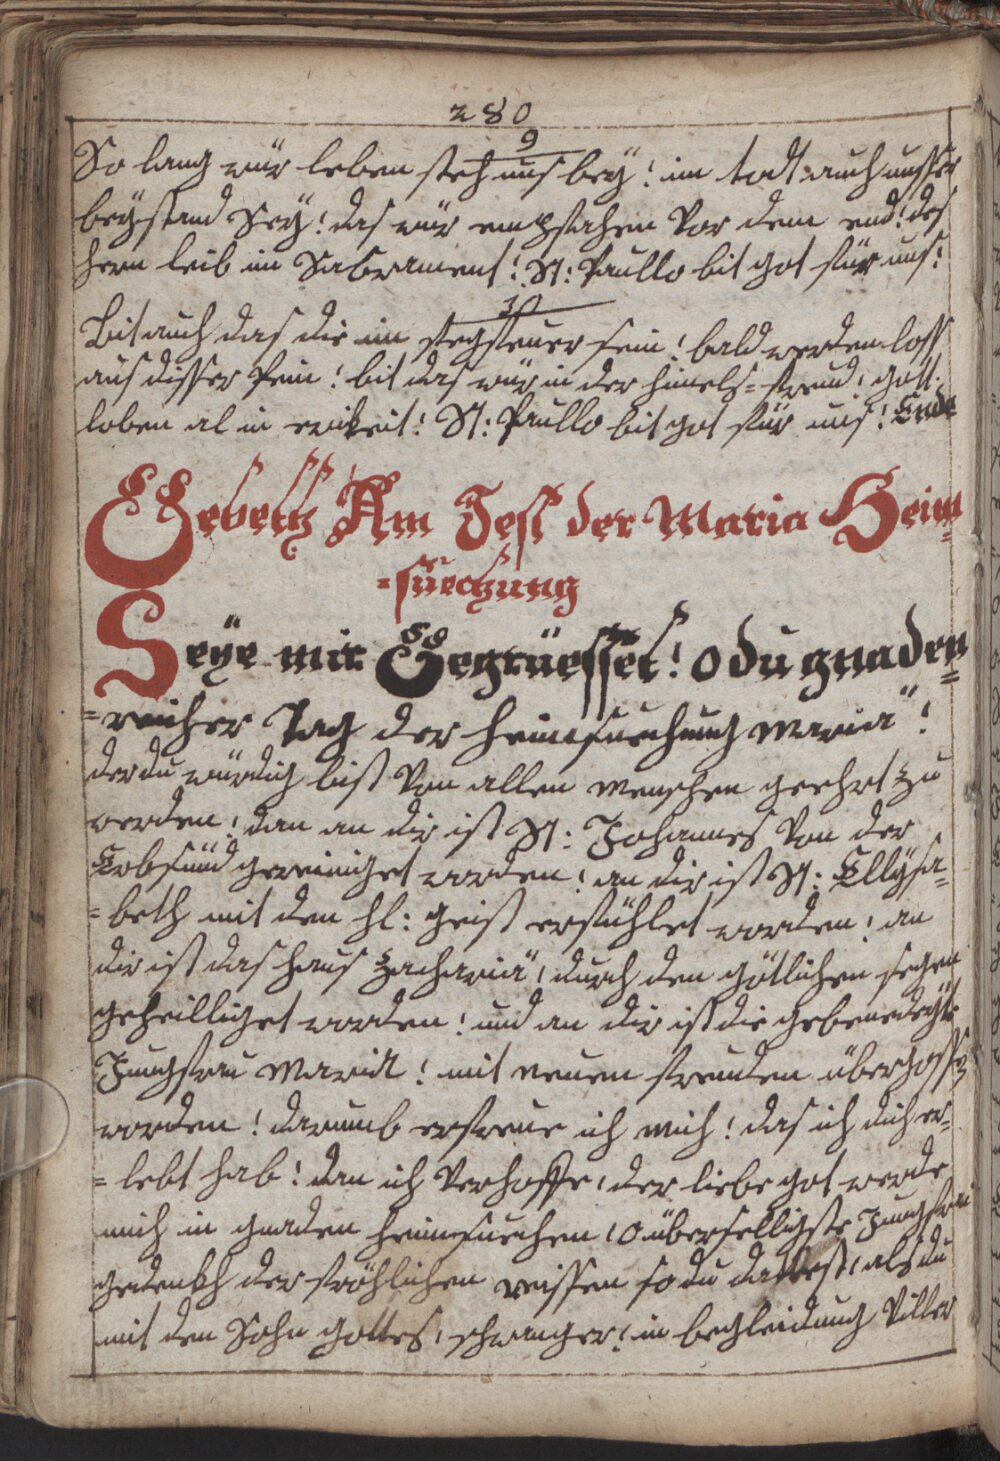 280
9
So lang wür leben steh uns beÿ! im todt auch unsser
beÿstand Seÿ! das wür empfahen Vor dem end! des
hern leib im Sacrament! St: Paullo bit got für uns!
10
Bit auch das die im fegfeuer sein! bald werden loss
aus disser Pein! bit das wür in der himels=freud! gott
loben al in ewikeit! St: Paullo bit got für uns! Ende
Gebett Am Fest der Maria Heim
=suechung
Seÿe mir Gegrüesset! o du gnaden
=reicher Tag der heimsuechung Mariä!
der du würdig bist Von allen menschen geehrt zu
werden! dan an dir ist St: Johannes Von der
Erbsünd gereiniget worden! an dir ist St: Ellÿsa=
=beth mit den hl: geist erfühlet worden! an
dir ist das haus Zachariä! durch den götlichen segen
geheilliget worden! und an dir ist die gebenedeÿte
Jungfrau Maria! mit neuen freuden übergossen
worden! darumb erfreue ich mich! das ich dich er=
=lebt hab! dan ich Verhoffe! der liebe got werde
mich in gnaden heimsuechen! o überselligste Jungfrau
gedenkh der fröhlichen reissen so du dattest! als du
mit den Sohn gottes! schwanger! in begleidung Viller